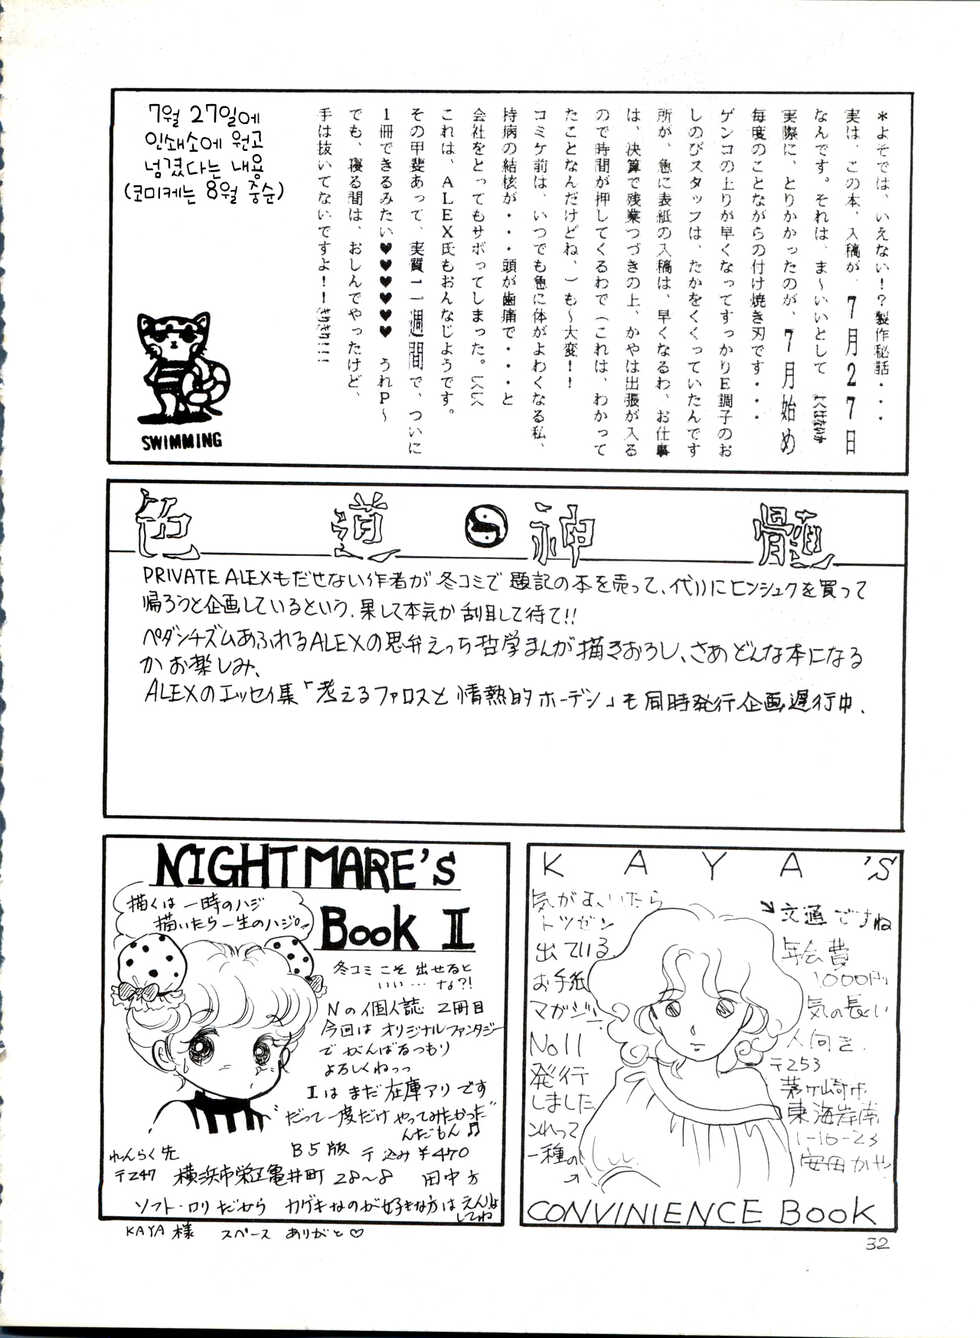 *よそでは、いえない！？製作秘話・・・
実は、この本、入稿が、7月27日
なんです。それは、ま～いいとして
実際に、とりかかったのが、7月始め
毎度のことながらの付け焼き刃です・・・
ゲンコの上りが早くなってすっかりE調子のお
しのびスタッフは、たかをくくっていたんです
所が、急に表紙の入稿は、早くなるわ、お仕事
は、決算で残業つづきの上、かやは出張が入る
ので時間が押してくるわで（これは、わかって
たことなんだけどね、）も～大変！！
コミケ前は、いつでも急に体がよわくなる私、
持病の結核が・・・頭が歯痛で・・・・と
会社をとってもサボってしまった。
これは、ALEX氏もおんなじようです。
その甲斐あって、実質一一週間で、ついに
1冊できるみたい♥♥♥♥♥♥ うれP～
でも、寝る間は、おしんでやったけど、
手は抜いてないですよ！！
7월 27일에
인쇄소에 원고
넘겼다는 내용
(코미케는 8월 중순)
SWIMMING
色道 神髄
PRIVATE ALEXもだせない作者が冬コミで題記の本を売って、代りにヒンシュクを買って
帰ろうと企画しているという。果して本気か刮目して待て!!
ペダンチズムあふれるALEXの思弁えっち哲学まんが描きおろし、さあどんな本になる
かお楽しみ、
ALEXのエッセイ集「考えるファロスと情熱的ホーデン」も同時発行企画遅行中.
NIGHTMARE's
Book II
描くは一時のハジ
描いたら一生のハジ。
冬コミこそ出せると
いい…な?!
Nの個人誌 2冊目
今回はオリジナルファンタジー
でがんばるつもり
よろしくねっっ
Iはまだ在庫アリです
"だって一度だけやってみたかった"
んだもん♬
B5版 〒込み¥470
れんらく先
〒247 横浜市栄区亀井町28～8 田中方
ソフト・ロリだから カゲキなのが好きな方はえんりょ
してね
KAYA様 スペース ありがと♡
KAYA'S
気がむいたら
トツゼン
出ている
お手紙
マガジン
No11
発行
しました
これって
一種の
↘文通ですね
年会費
1000円
気の長い
人向き.
〒253
茅ヶ崎市
東海岸南
1-16-23
安田かや
CONVINIENCE Book
32